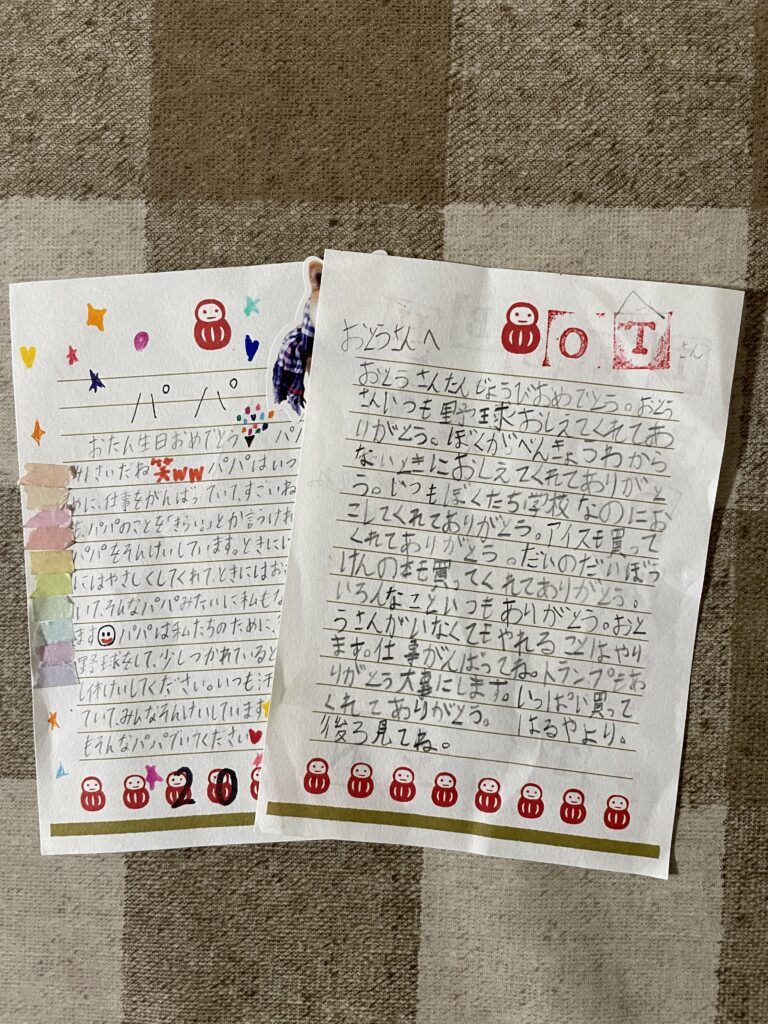 パパ
おたん生日おめでとう パパ
みはさいだね笑ww パパはいつ
めに、仕事をがんばっていて、すごいね
もパパのことを「きらい」とか言うけれ
パパをそんけいしています。ときには
にはやさしくしてくれて、ときにはお
いて、そんなパパみたいに私もな
ます パパは私たちのために、
野球をして、少しつかれていると
し休けいしてください。いつも汗
ていて、みんなそんけいしています
もそんなパパでいてください
20
おとうさんへ
OT
さん
おとうさんたんじょうびおめでとう。おとう
さんいつも野球おしえてくれてあ
りがとう。ぼくがべんきょうわから
ないときにおしえてくれてありがと
う。いつもぼくたち学校なのにお
こしてくれてありがとう。アイスも買って
くれてありがとう。だいのだいぼう
けんの本も買ってくれてありがとう。
いろんなこといつもありがとう。おと
うさんがいなくてもやれることはやり
ます。仕事がんばってね。トランプもあ
りがとう大事にします。いっぱい買って
くれてありがとう。 はるやより。
後ろ見てね。